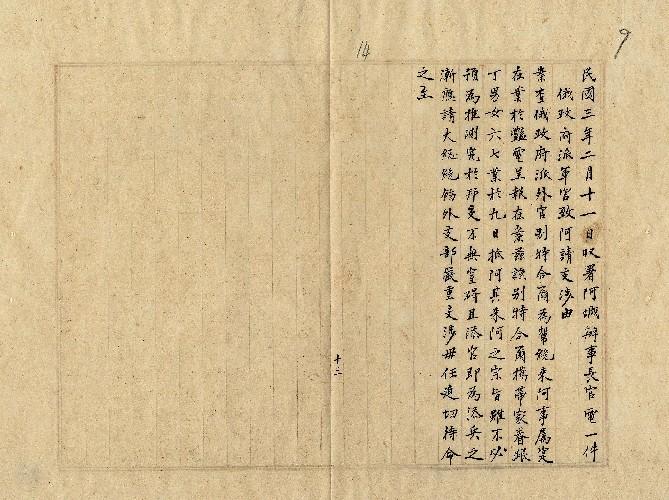 9
14
民國三年二月十一日收署阿城辦事長官電一件
俄政府派軍官致阿請交涉由
案查俄政府派外官別特合爾為幫統來阿事屬定
在業於豔電呈報在案茲該別特合爾攜帶家眷跟
丁男女六七業於九日抵阿其來阿之宗旨雖不必
預為推測究於邦交不無窒碍且添官即為添兵之
漸應請大總統飭外交部嚴重交涉毋任進切待命
之至
十三